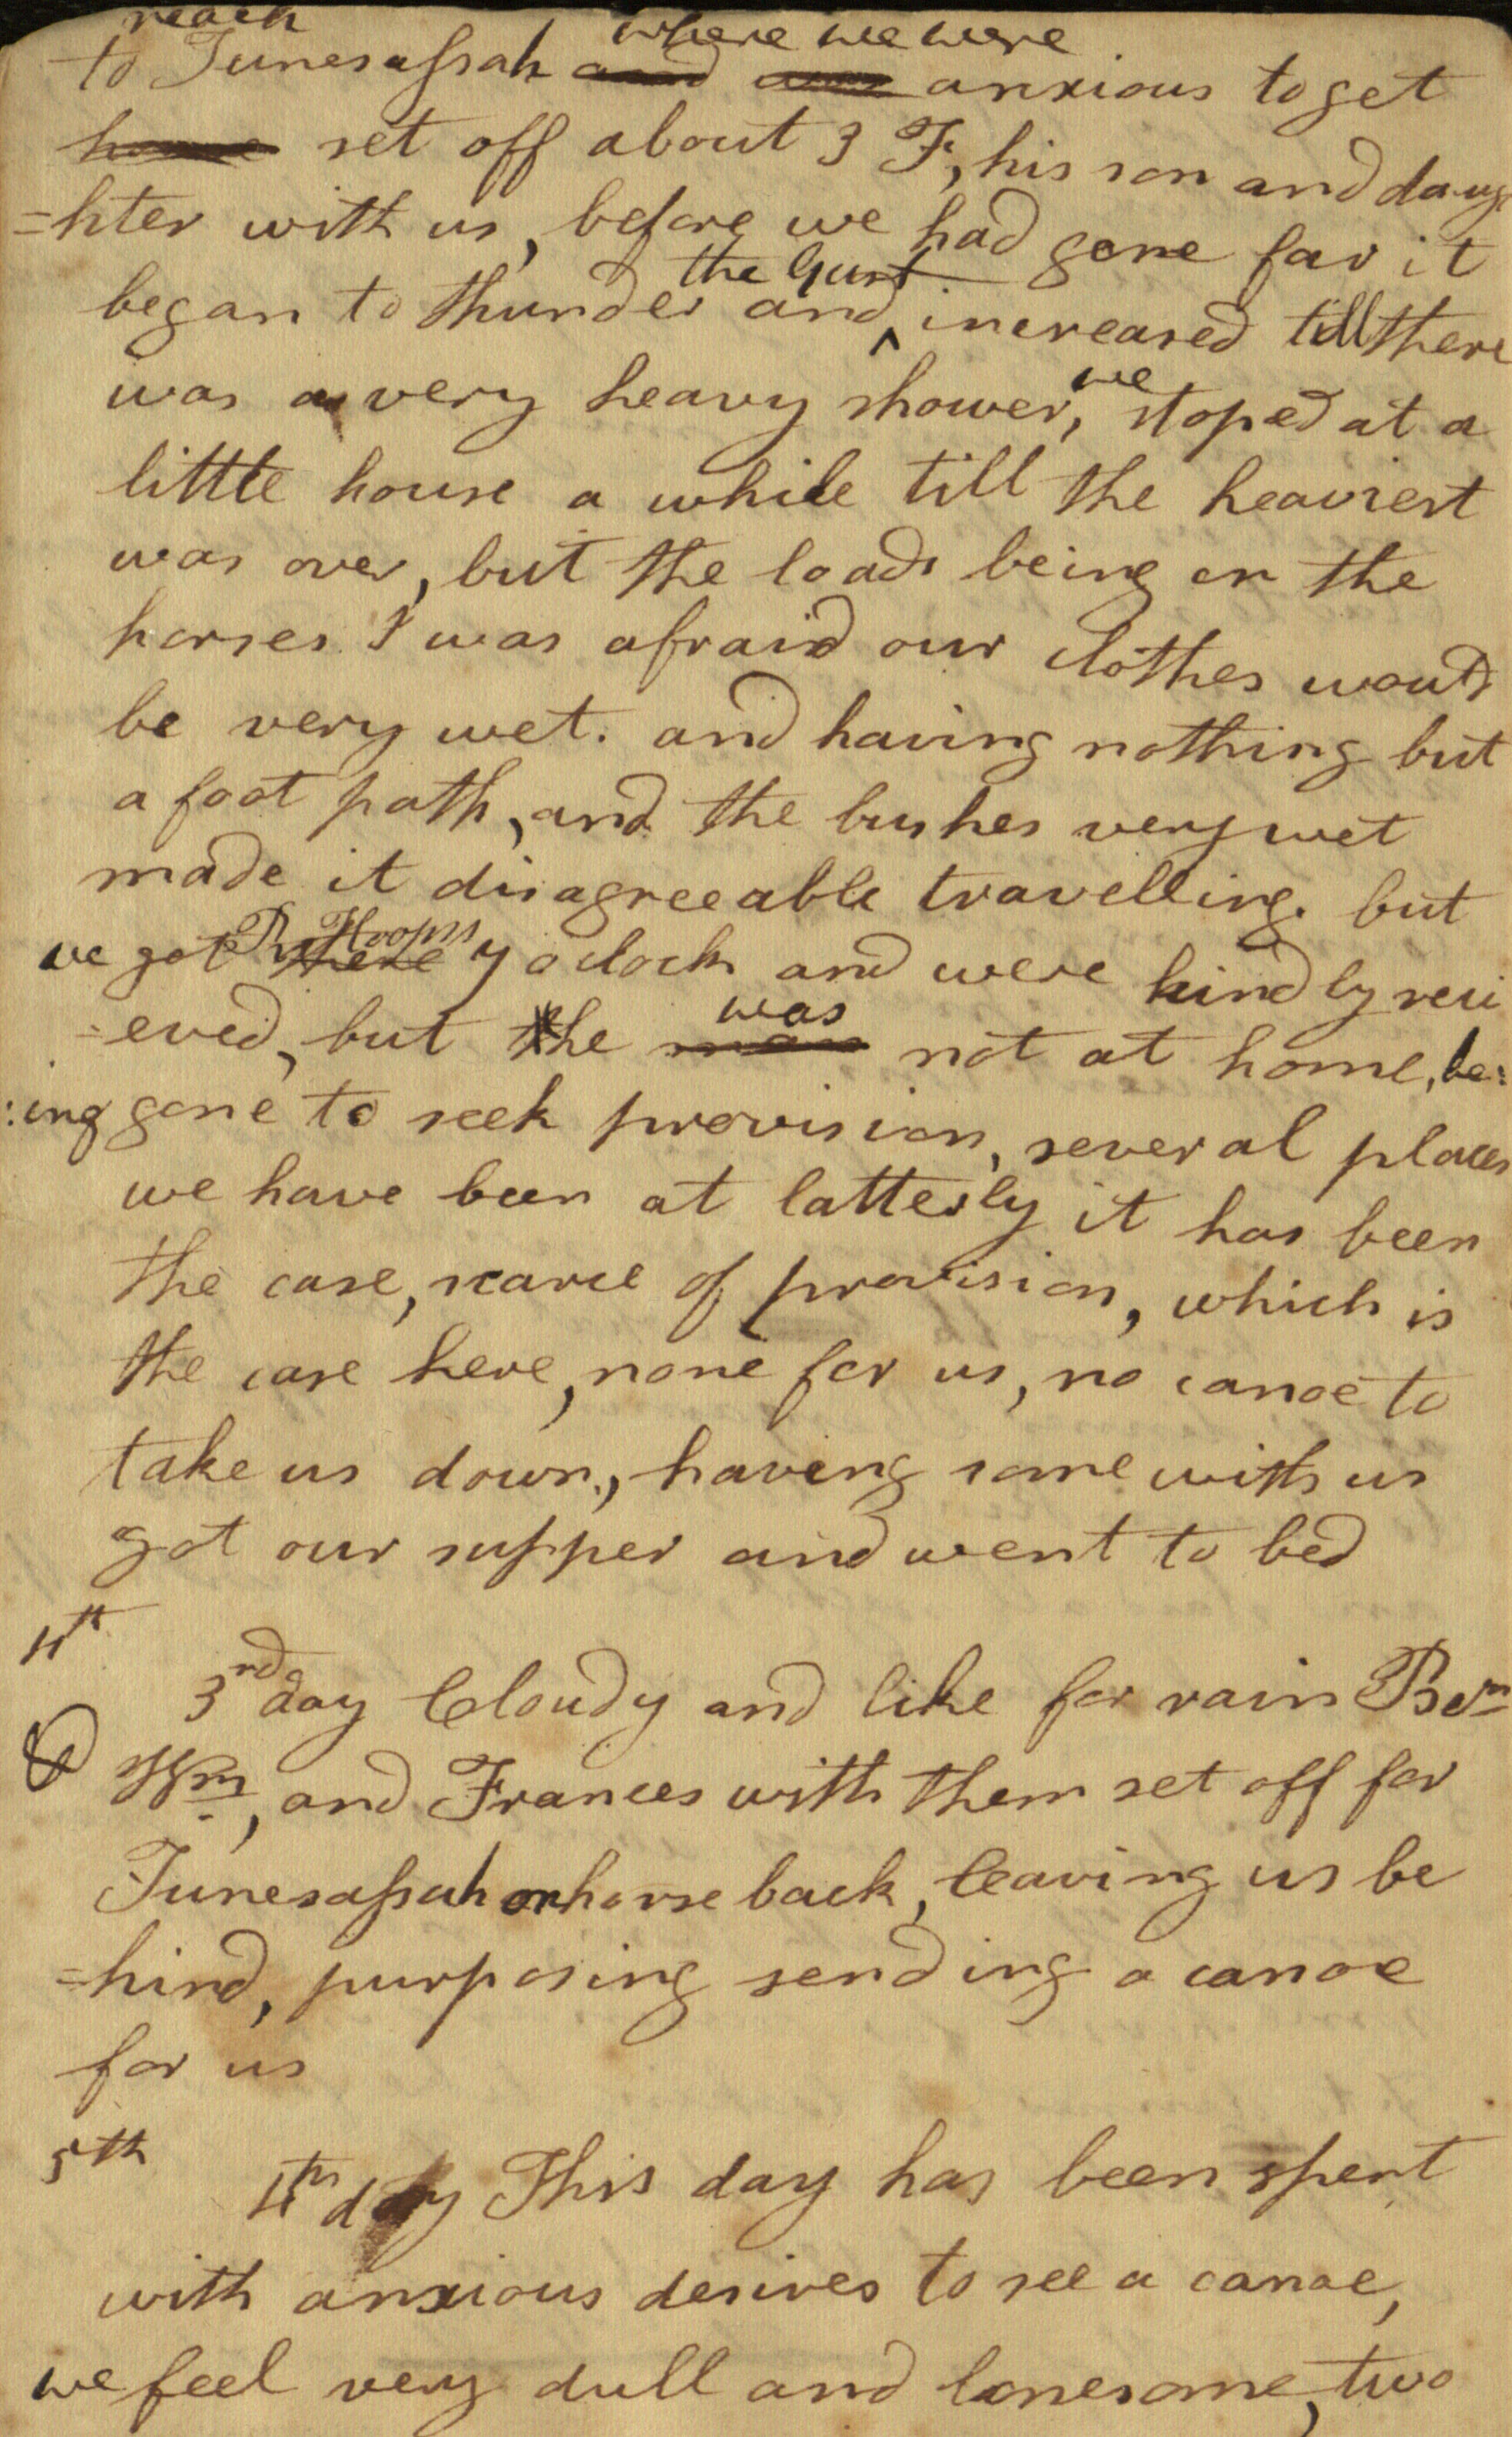 reach where we were
to Tunesassah and are anxious to get
home set off about 3 F, his son and daug
=hter with us, before we had gone far it
the Gust
began to thunder and ^ increased till there
was a very heavy shower, we stoped at a
little house a while till the heaviest
was over, but the loads being on the
horses I was afraid our clothes would
be very wet. and having nothing but
a foot path, and the bushes very wet
made it disagreeable travelling. but
R Hoops
we got there 7 oclock and were kindly reci
was
=eved, but he man not at home, be:
:ing gone to seek provision, several places
we have been at latterly it has been
the case, scarce of provision, which is
the case here, none for us, no canoe to
take us down, having some with us
got our supper and went to bed
4th
3rd day Cloudy and like for rain Bn
Wm, and Frances with them set off for
Tunesassah on horse back, leaving us be
=hind, purposing sending a canoe
for us
5th
4th day This day has been spent
with anxious desires to see a canoe,
we feel very dull and lonesome, two